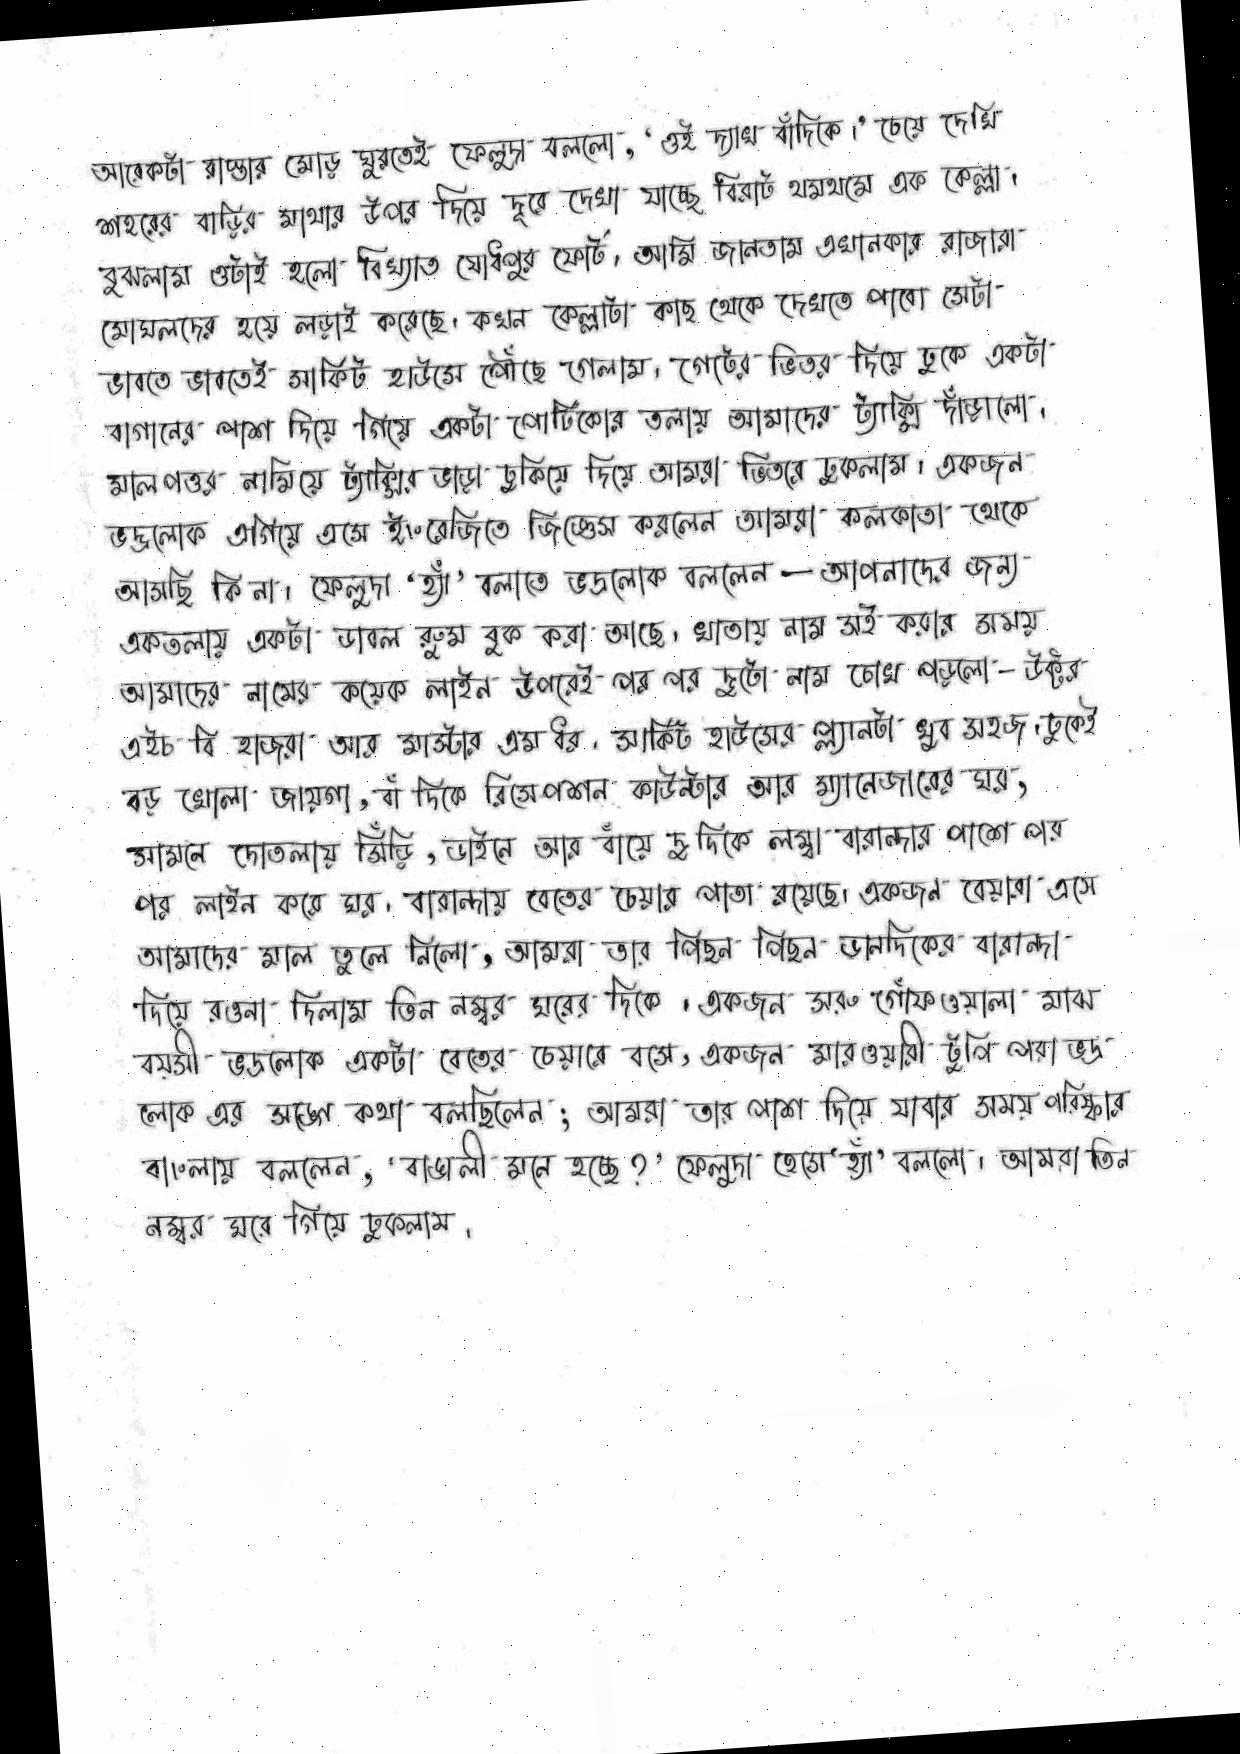 আরেকটা রাস্তার মোড় ঘুরতেই ফেলুদা বললো, 'ওই দ্যাখ বাঁদিকে।' চেয়ে দেখি
শহরের বাড়ির মাথার উপর দিয়ে দূরে দেখা যাচ্ছে বিরাট থমথমে এক কেল্লা।
বুঝলাম ওটাই হলো বিখ্যাত যোধপুর ফোর্ট। আমি জানতাম এখানকার রাজারা
মোঘলদের হয়ে লড়াই করেছে। কখন কেল্লাটা কাছ থেকে দেখতে পাবো সেটা
ভাবতে ভাবতেই সার্কিট হাউসে পৌঁছে গেলাম। গেটের ভিতর দিয়ে ঢুকে একটা
বাগানের পাশ দিয়ে গিয়ে একটা পোর্টিকোর তলায় আমাদের ট্যাক্সি দাঁড়ালো।
মালপত্তর নামিয়ে ট্যাক্সির ভাড়া চুকিয়ে দিয়ে আমরা ভিতরে ঢুকলাম। একজন
ভদ্রলোক এগিয়ে এসে ইংরেজিতে জিজ্ঞেস করলেন আমরা কলকাতা থেকে
আসছি কি না। ফেলুদা 'হ্যাঁ' বলাতে ভদ্রলোক বললেন — আপনাদের জন্য
একতলায় একটা ডাবল রুম বুক করা আছে। খাতায় নাম সই করার সময়
আমাদের নামের কয়েক লাইন উপরেই পর পর দুটো নাম চোখ পড়লো - ডক্টর
এইচ বি হাজরা আর মাস্টার এম ধর। সার্কিট হাউসের প্ল্যানটা খুব সহজ। ঢুকেই
বড় খোলা জায়গা, বাঁ দিকে রিসেপশন কাউন্টার আর ম্যানেজারের ঘর,
সামনে দোতলায় সিঁড়ি, ডাইনে আর বাঁয়ে দু দিকে লম্বা বারান্দার পাশে পর
পর লাইন করে ঘর। বারান্দায় বেতের চেয়ার পাতা রয়েছে। একজন বেয়ারা এসে
আমাদের মাল তুলে নিলো, আমরা তার পিছন পিছন ডানদিকের বারান্দা
দিয়ে রওনা দিলাম তিন নম্বর ঘরের দিকে। একজন সরু গোঁফওয়ালা মাঝ
বয়সী ভদ্রলোক একটা বেতের চেয়ারে বসে, একজন মারওয়ারী টুপি পরা ভদ্র
লোক এর সঙ্গে কথা বলছিলেন; আমরা তার পাশ দিয়ে যাবার সময় পরিষ্কার
বাংলায় বললেন, 'বাঙালী মনে হচ্ছে?' ফেলুদা হেসে 'হ্যাঁ' বললো। আমরা তিন
নম্বর ঘরে গিয়ে ঢুকলাম।